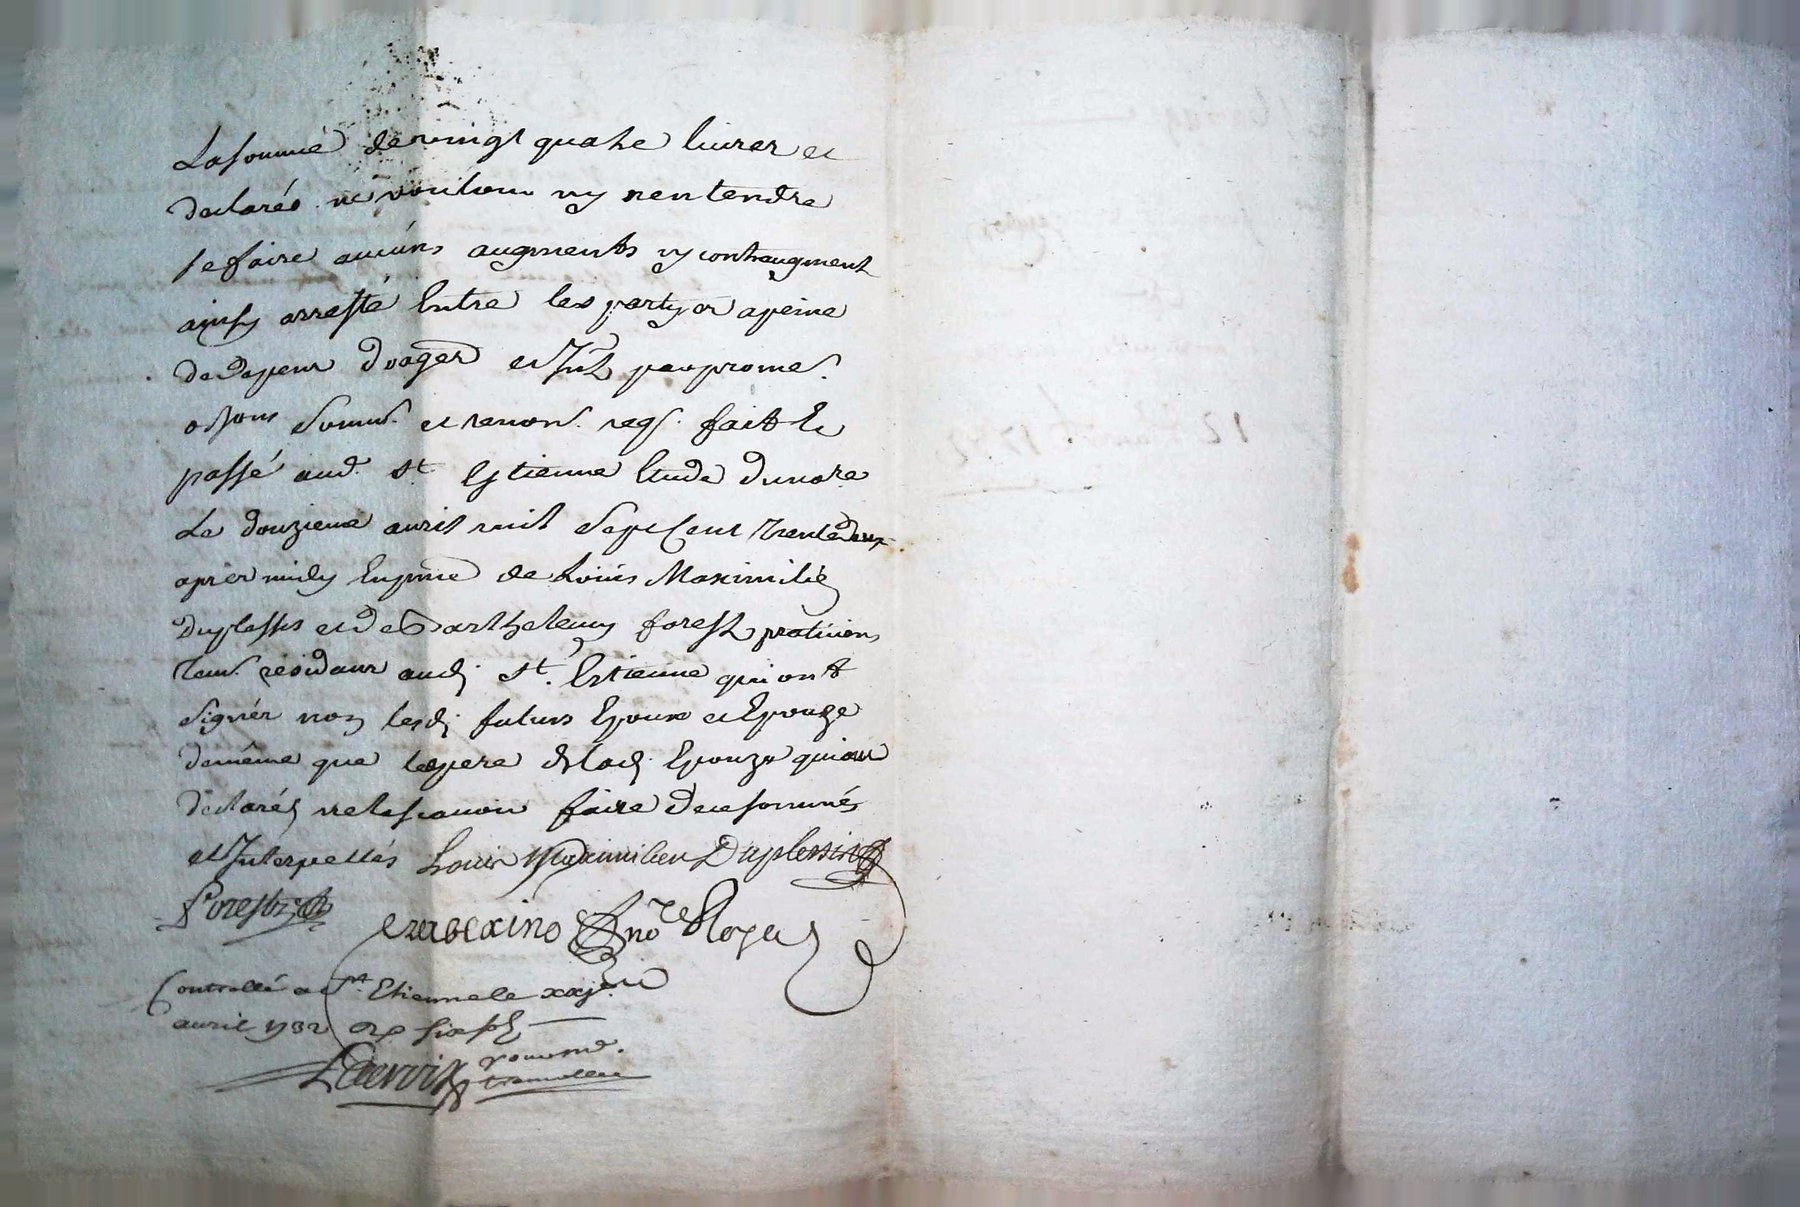 La somme de vingt quatre livres et
declarés ne vouloir ny nentendre
se faire aucuns augments ny contraugment
ainsy arresté Entre les partyes a peine
de depens et Int par prome.
soum. et renon. req. fait Et
passé aud. st Estienne Etude du nore
Le douzieme avril mil Sept Cent trente deux
apres midy En pnce de Louis Maximilien
Duplessis et de Barthelemy forest praticiens
residans aud. st. Estienne qui ont
signés non lesd. futurs Epoux et Epouze
de même que le pere de lad. Epouze qui ont
declarés ne le scavoir faire de ce sommés
et Interpellés Louis Maximilien Duplessis
Forest
nore Royal
Controllé a St. Etienne le xxje
avril 1732